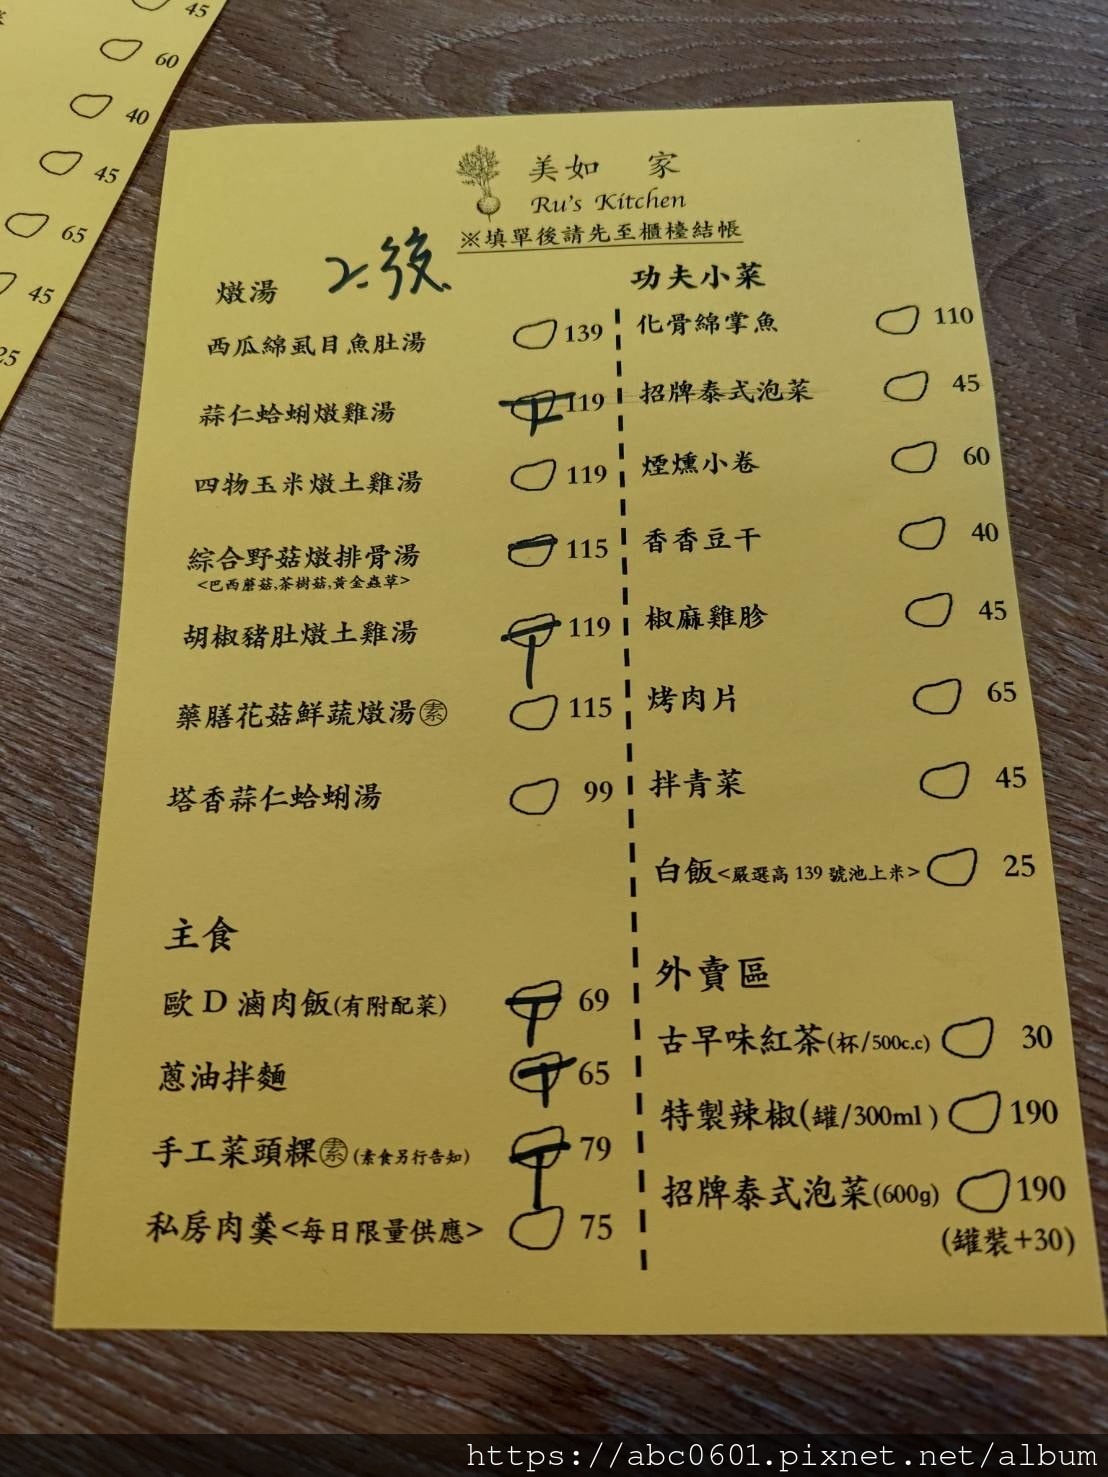 45
60
40
45
65
45
25
美如 家
Ru's Kitchen
※填單後請先至櫃檯結帳
燉湯
西瓜綿虱目魚肚湯 139
蒜仁蛤蜊燉雞湯 119
四物玉米燉土雞湯 119
綜合野菇燉排骨湯 115
<巴西蘑菇,茶樹菇,黃金蟲草>
胡椒豬肚燉土雞湯 119
藥膳花菇鮮蔬燉湯素 115
塔香蒜仁蛤蜊湯 99
主食
歐D滷肉飯(有附配菜) 69
蔥油拌麵 65
手工菜頭粿素(素食另行告知) 79
私房肉羹<每日限量供應> 75
功夫小菜
化骨綿掌魚 110
招牌泰式泡菜 45
煙燻小卷 60
香香豆干 40
椒麻雞胗 45
烤肉片 65
拌青菜 45
白飯<嚴選高139號池上米> 25
外賣區
古早味紅茶(杯/500c.c) 30
特製辣椒(罐/300ml) 190
招牌泰式泡菜(600g) 190
(罐裝+30)
https://abc0601.pixnet.net/album